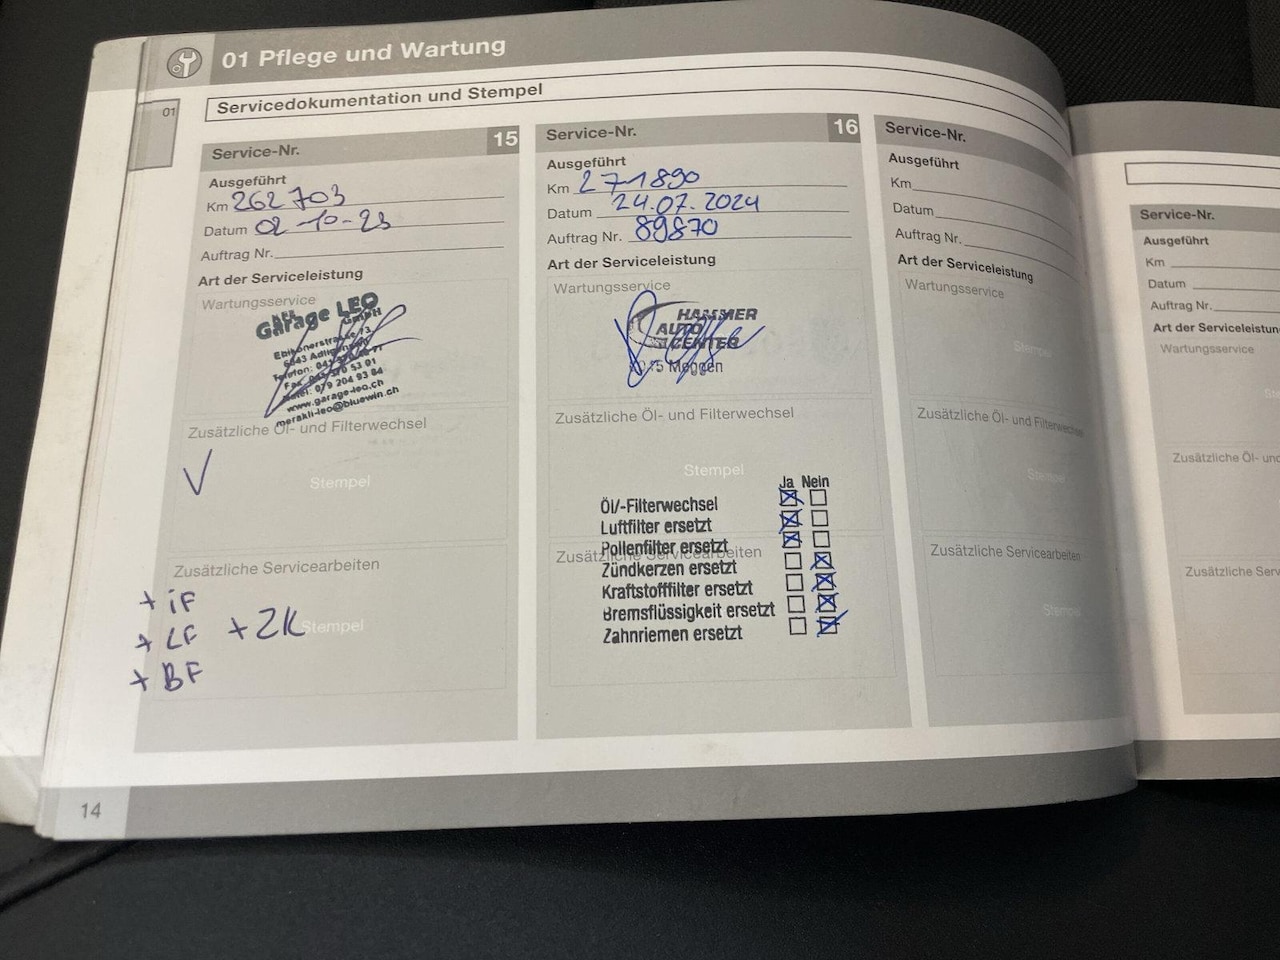 01 Pflege und Wartung
01
Servicedokumentation und Stempel
Service-Nr. 15
Ausgeführt
Km 262703
Datum 02-10-23
Auftrag Nr.
Art der Serviceleistung
Wartungsservice
Garage LEO
GmbH
6043
Telefon: 041
Fax
079 204 93 84
www.garage-leo.ch
merakli-leo@bluewin.ch
Zusätzliche Öl- und Filterwechsel
V
Stempel
Zusätzliche Servicearbeiten
+ iF
+ LF + ZK
Stempel
+ BF
Service-Nr. 16
Ausgeführt
Km 271890
Datum 24.07.2024
Auftrag Nr. 89870
Art der Serviceleistung
Wartungsservice
HAMMER
AUTO
CENTER
Meggen
Zusätzliche Öl- und Filterwechsel
Stempel
Ja Nein
Öl/-Filterwechsel
Luftfilter ersetzt
Pollenfilter ersetzt
Zusätzliche Servicearbeiten
Zündkerzen ersetzt
Kraftstofffilter ersetzt
Bremsflüssigkeit ersetzt
Zahnriemen ersetzt
Service-Nr.
Ausgeführt
Km
Datum
Auftrag Nr.
Art der Serviceleistung
Wartungsservice
Stempel
Zusätzliche Öl- und Filterwechsel
Stempel
Zusätzliche Servicearbeiten
Stempel
14
Service-Nr.
Ausgeführt
Km
Datum
Auftrag Nr.
Art der Serviceleistun
Wartungsservice
Zusätzliche Öl- und
Zusätzliche Serv